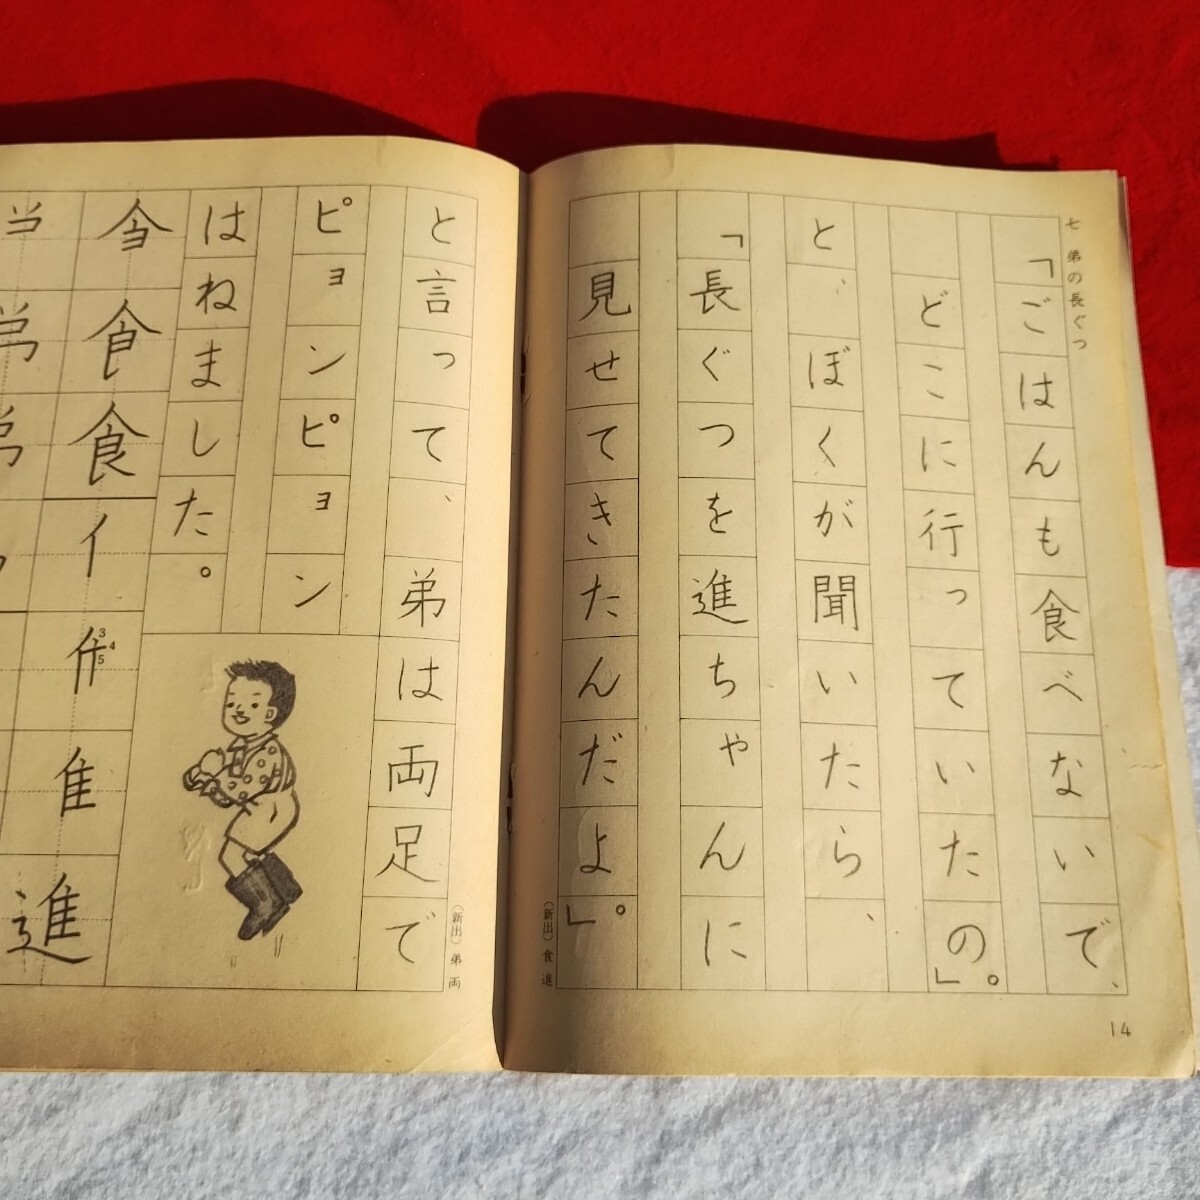 七 弟の長ぐつ
「ごはんも食べないで、
どこに行っていたの」。
と、ぼくが聞いたら、
「長ぐつを進ちゃんに
見せてきたんだよ」。
(新出) 食 進
14
と言って、弟は両足で
ピョンピョン
はねました。
(新出) 弟 両
食食
進